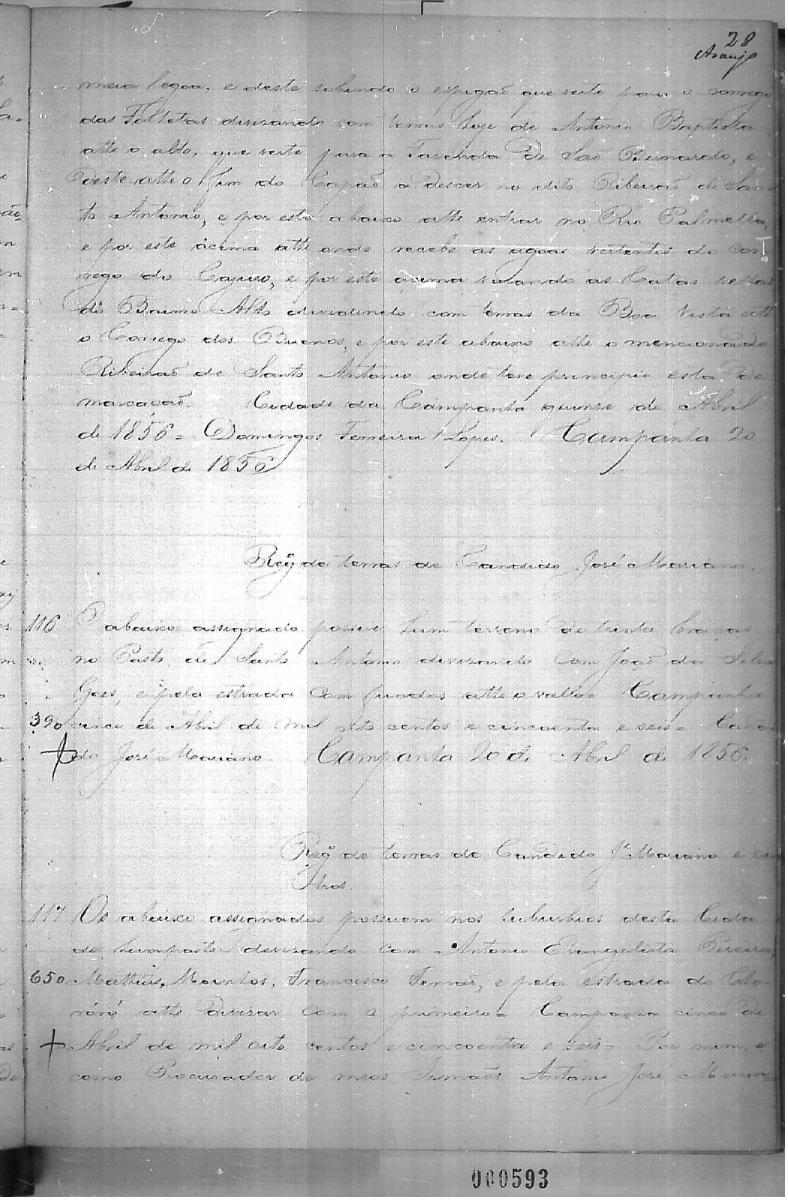 28
Araujo
meia legoa, e deste sobindo o espigaõ que verte para o corrego
das divisando com terras hoje de Antonio Baptista
athe o alto, que verte para a Fasenda de Saõ Bernardo, e
deste athe o fim do Capaõ a descer no dito Ribeiraõ de San
to Antonio, e por este abaixo athe entrar no Rio Palmella,
e por este acima athe onde recebe as agoas vertentes do cor
rego do e por este acima as Catas
do Bairro Alto dividindo com terras da Boa Vista athe
o Corrego dos Buenos, e por este abaixo athe o mencionado
Ribeiraõ de Santo Antonio onde teve principio esta de
marcaçaõ. Cidade da Campanha quinse de Abril
de 1856 = Domingos Ferreira Lopes. Campanha 20
de Abril de 1856
Regº de terras de Candido José Mariano.
116 O abaixo assignado possue hum terreno de trinta braças
no Pasto de Santo Antonio divisando com Joaõ da Silva
Goes, e pela estrada com fundos athe o vallo = Campanha
390 cinco de Abril de mil oito centos e cincoenta e seis = Candi
do José Mariano. Campanha 20 de Abril de 1856.
Regº de terras de Candido Jº Mariano e ou
tros.
117 Os abaixo assignados possuem nos suburbios desta Cida
de hum pasto divisando com Antonio Evangelista Pereira,
650 Mathias Francisco e pela estrada do
athe divisar com o primeiro = Campanha cinco de
Abril de mil oito centos e cincoenta e seis = Por mim, e
como Procurador de meos Irmaõs Antonio José Maria
000593